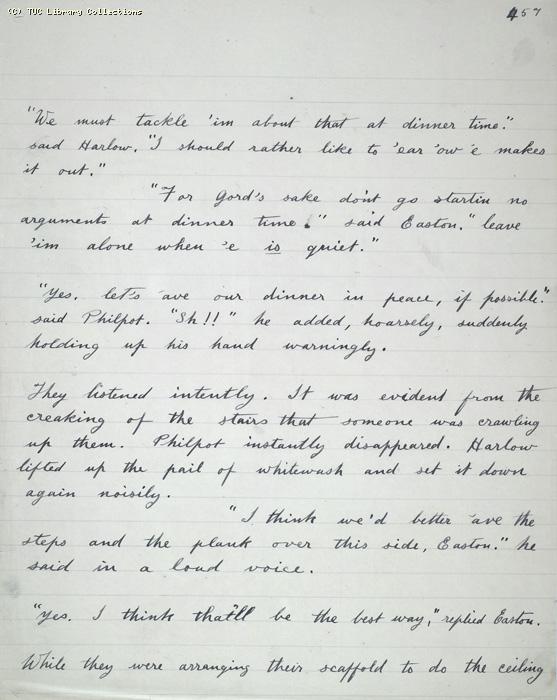 (C) TUC Library Collections
457
"We must tackle 'im about that at dinner time."
said Harlow. "I should rather like to 'ear 'ow 'e makes
it out."
"For Gord's sake don't go startin no
arguments at dinner time." said Easton. "leave
'im alone when 'e is quiet."
"Yes. let's 'ave our dinner in peace, if possible."
said Philpot. "Sh!!" he added, hoarsely, suddenly
holding up his hand warningly.
They listened intently. It was evident from the
creaking of the stairs that someone was crawling
up them. Philpot instantly disappeared. Harlow
lifted up the pail of whitewash and set it down
again noisily.
"I think we'd better 'ave the
steps and the plank over this side, Easton." he
said in a loud voice.
"Yes. I think that'll be the best way," replied Easton.
While they were arranging their scaffold to do the ceiling